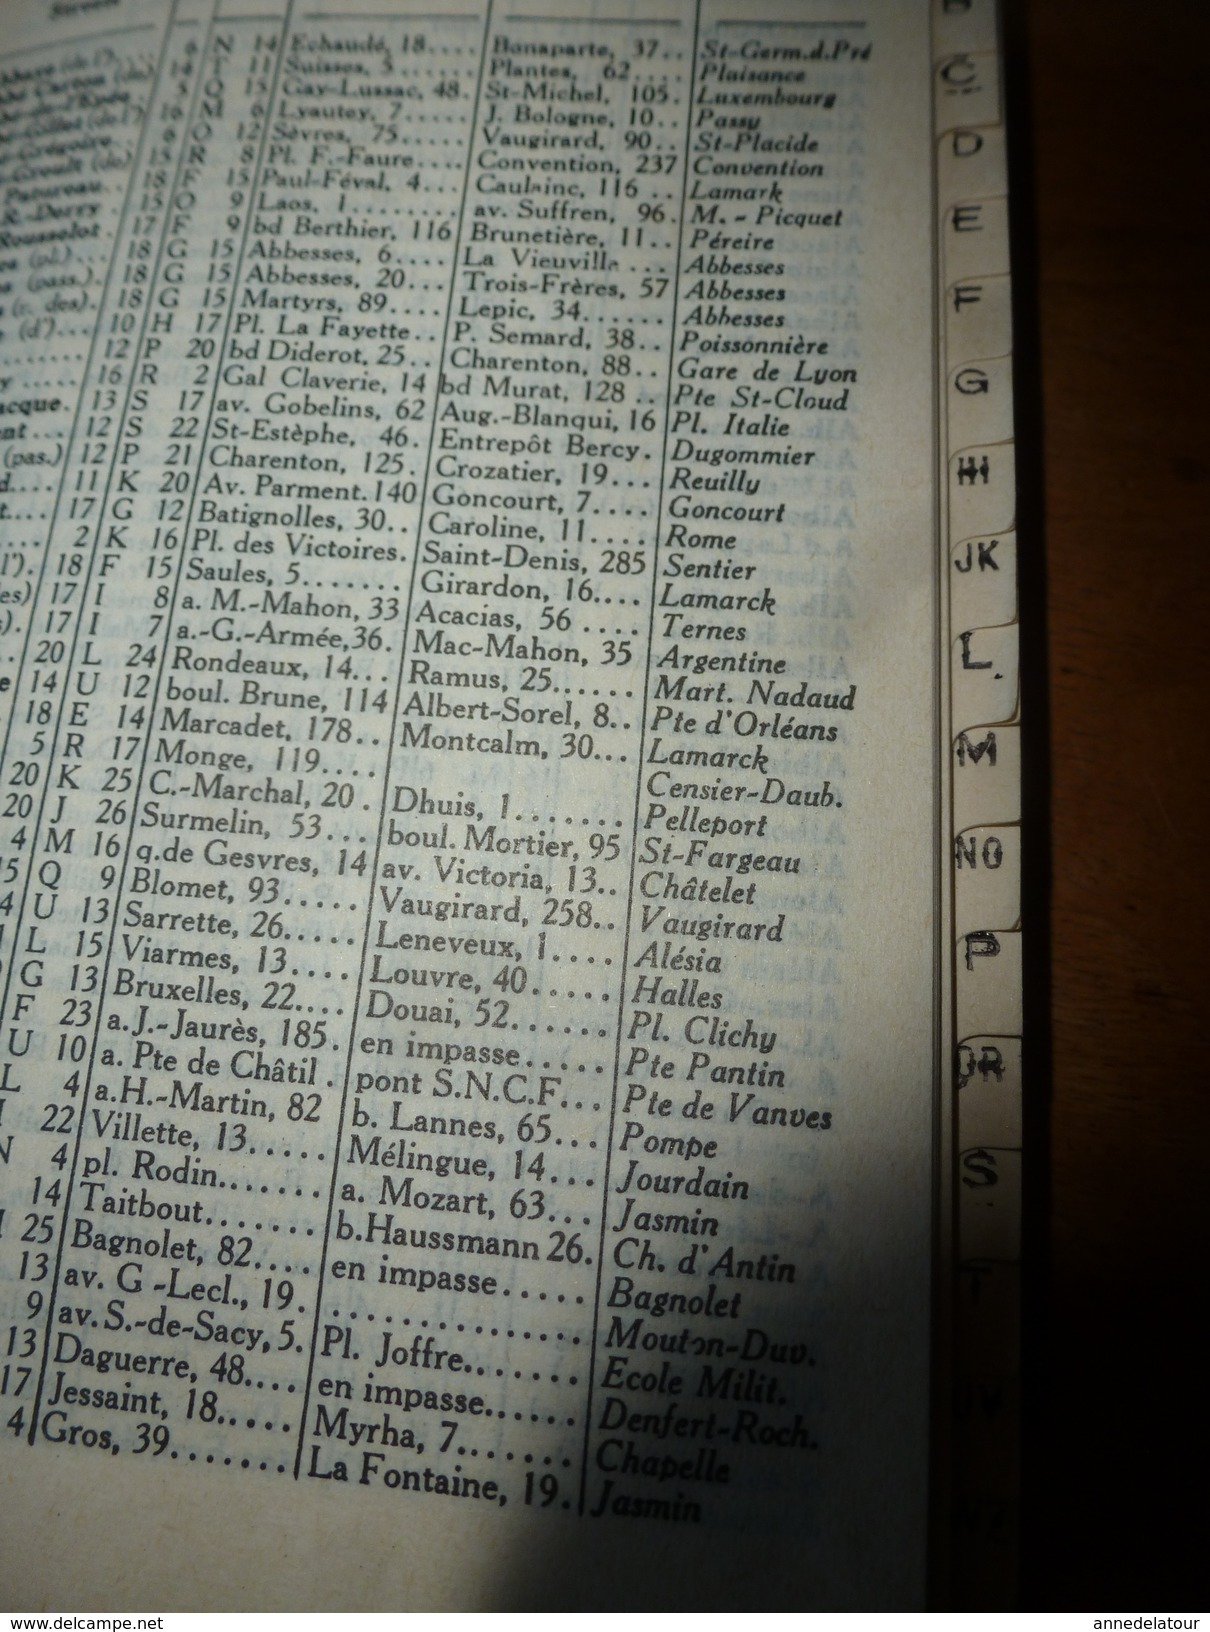 Streets
6 N 14 Echaudé, 18.... Bonaparte, 37.. St-Germ.d.Pré
14 T 11 Suisses, 3...... Plantes, 62.... Plaisance
5 Q 15 Gay-Lussac, 48. St-Michel, 105. Luxembourg
16 M 6 Lyautey, 7..... J. Bologne, 10.. Passy
6 O 12 Sèvres, 75..... Vaugirard, 90.. St-Placide
15 R 8 Pl. F.-Faure.... Convention, 237 Convention
Patureau.. 18 F 15 Paul-Féval, 4... Caulainc, 116 .. Lamark
R.-Derry . 15 O 9 Laos, 1........ av. Suffren, 96. M. - Picquet
Rousselot. 17 F 9 bd Berthier, 116 Brunetière, 11.. Péreire
(pl.)... 18 G 15 Abbesses, 6.... La Vieuville ... Abbesses
(pass.). 18 G 15 Abbesses, 20... Trois-Frères, 57 Abbesses
(r. des). 18 G 15 Martyrs, 89.... Lepic, 34...... Abbesses
(d')... 10 H 17 Pl. La Fayette.. P. Semard, 38.. Poissonnière
........ 12 P 20 bd Diderot, 25.. Charenton, 88.. Gare de Lyon
y ..... 16 R 2 Gal Claverie, 14 bd Murat, 128 .. Pte St-Cloud
acque. 13 S 17 av. Gobelins, 62 Aug.-Blanqui, 16 Pl. Italie
nt... 12 S 22 St-Estèphe, 46. Entrepôt Bercy. Dugommier
(pas.) 12 P 21 Charenton, 125. Crozatier, 19... Reuilly
d.... 11 K 20 Av. Parment. 140 Goncourt, 7.... Goncourt
t.... 17 G 12 Batignolles, 30.. Caroline, 11.... Rome
... 2 K 16 Pl. des Victoires. Saint-Denis, 285 Sentier
l'). 18 F 15 Saules, 5....... Girardon, 16.... Lamarck
es) 17 I 8 a. M.-Mahon, 33 Acacias, 56 .... Ternes
s). 17 I 7 a.-G.-Armée,36. Mac-Mahon, 35 Argentine
.. 20 L 24 Rondeaux, 14... Ramus, 25...... Mart. Nadaud
e 14 U 12 boul. Brune, 114 Albert-Sorel, 8.. Pte d'Orléans
. 18 E 14 Marcadet, 178.. Montcalm, 30... Lamarck
5 R 17 Monge, 119.... Censier-Daub.
20 K 25 C.-Marchal, 20 . Dhuis, 1....... Pelleport
20 J 26 Surmelin, 53... boul. Mortier, 95 St-Fargeau
4 M 16 q.de Gesvres, 14 av. Victoria, 13.. Châtelet
5 Q 9 Blomet, 93..... Vaugirard, 258.. Vaugirard
4 U 13 Sarrette, 26..... Leneveux, 1.... Alésia
L 15 Viarmes, 13.... Louvre, 40..... Halles
G 13 Bruxelles, 22.... Douai, 52...... Pl. Clichy
F 23 a.J.-Jaurès, 185. en impasse...... Pte Pantin
U 10 a. Pte de Châtil . pont S.N.C.F... Pte de Vanves
L 4 a.H.-Martin, 82 b. Lannes, 65... Pompe
22 Villette, 13..... Mélingue, 14... Jourdain
N 4 pl. Rodin....... a. Mozart, 63... Jasmin
14 Taitbout....... b.Haussmann 26. Ch. d'Antin
25 Bagnolet, 82.... en impasse..... Bagnolet
13 av. G -Lecl., 19. ............... Mouton-Duv.
9 av.S.-de-Sacy, 5. Pl. Joffre....... Ecole Milit.
13 Daguerre, 48.... en impasse...... Denfert-Roch.
17 Jessaint, 18..... Myrha, 7....... Chapelle
4 Gros, 39....... La Fontaine, 19. Jasmin
C
D
E
F
G
HI
JK
L.
M
NO
P
QR
S
T
UV
www.delcampe.net
annedelatour